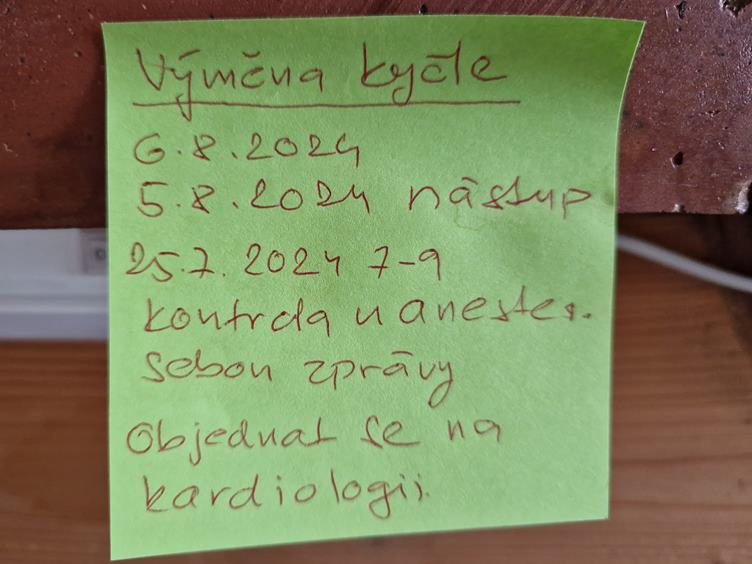 Výměna kyčle
6.8.2024
5.8.2024 nástup
25.7. 2024 7-9
kontrola u anestes.
sebou zprávy
Objednat se na
kardiologii.